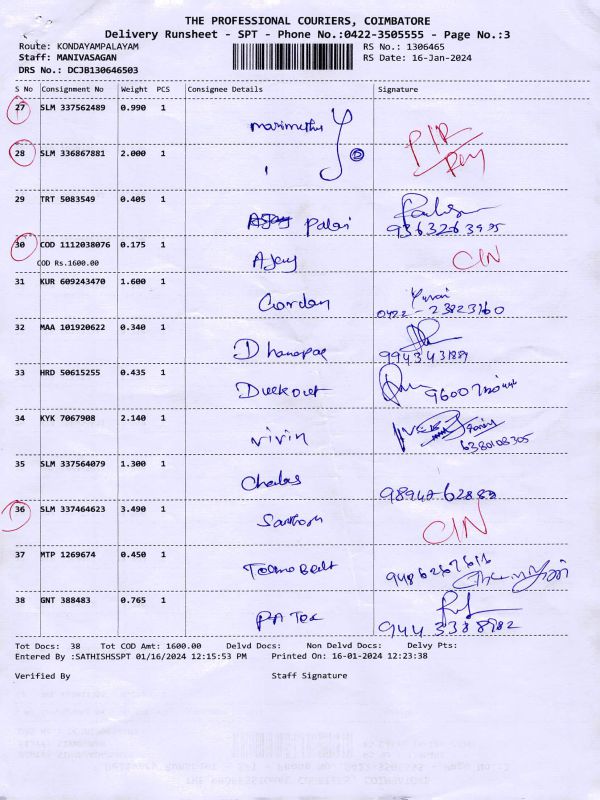 THE PROFESSIONAL COURIERS, COIMBATORE
Delivery Runsheet - SPT - Phone No.:0422-3505555 - Page No.:3
Route: KONDAYAMPALAYAM RS No.: 1306465
Staff: MANIVASAGAN RS Date: 16-Jan-2024
DRS No.: DCJB130646503
S No Consignment No Weight PCS Consignee Details Signature
27 SLM 337562489 0.990 1 marimuthu
28 SLM 336867881 2.000 1
29 TRT 5083549 0.405 1 Palai
30 COD 1112038076 0.175 1 Ajay CIN
COD Rs.1600.00
31 KUR 609243470 1.600 1 Gordon
32 MAA 101920622 0.340 1 Dhanapae
33 HRD 50615255 0.435 1 Duckout
34 KYK 7067908 2.140 1 vivin
6380108305
35 SLM 337564079 1.300 1
36 SLM 337464623 3.490 1 Santhosh CIN
37 MTP 1269674 0.450 1
38 GNT 388483 0.765 1 PA Tex
944 3388982
Tot Docs: 38 Tot COD Amt: 1600.00 Delvd Docs: Non Delvd Docs: Delvy Pts:
Entered By :SATHISHSSPT 01/16/2024 12:15:53 PM Printed On: 16-01-2024 12:23:38
Verified By Staff Signature